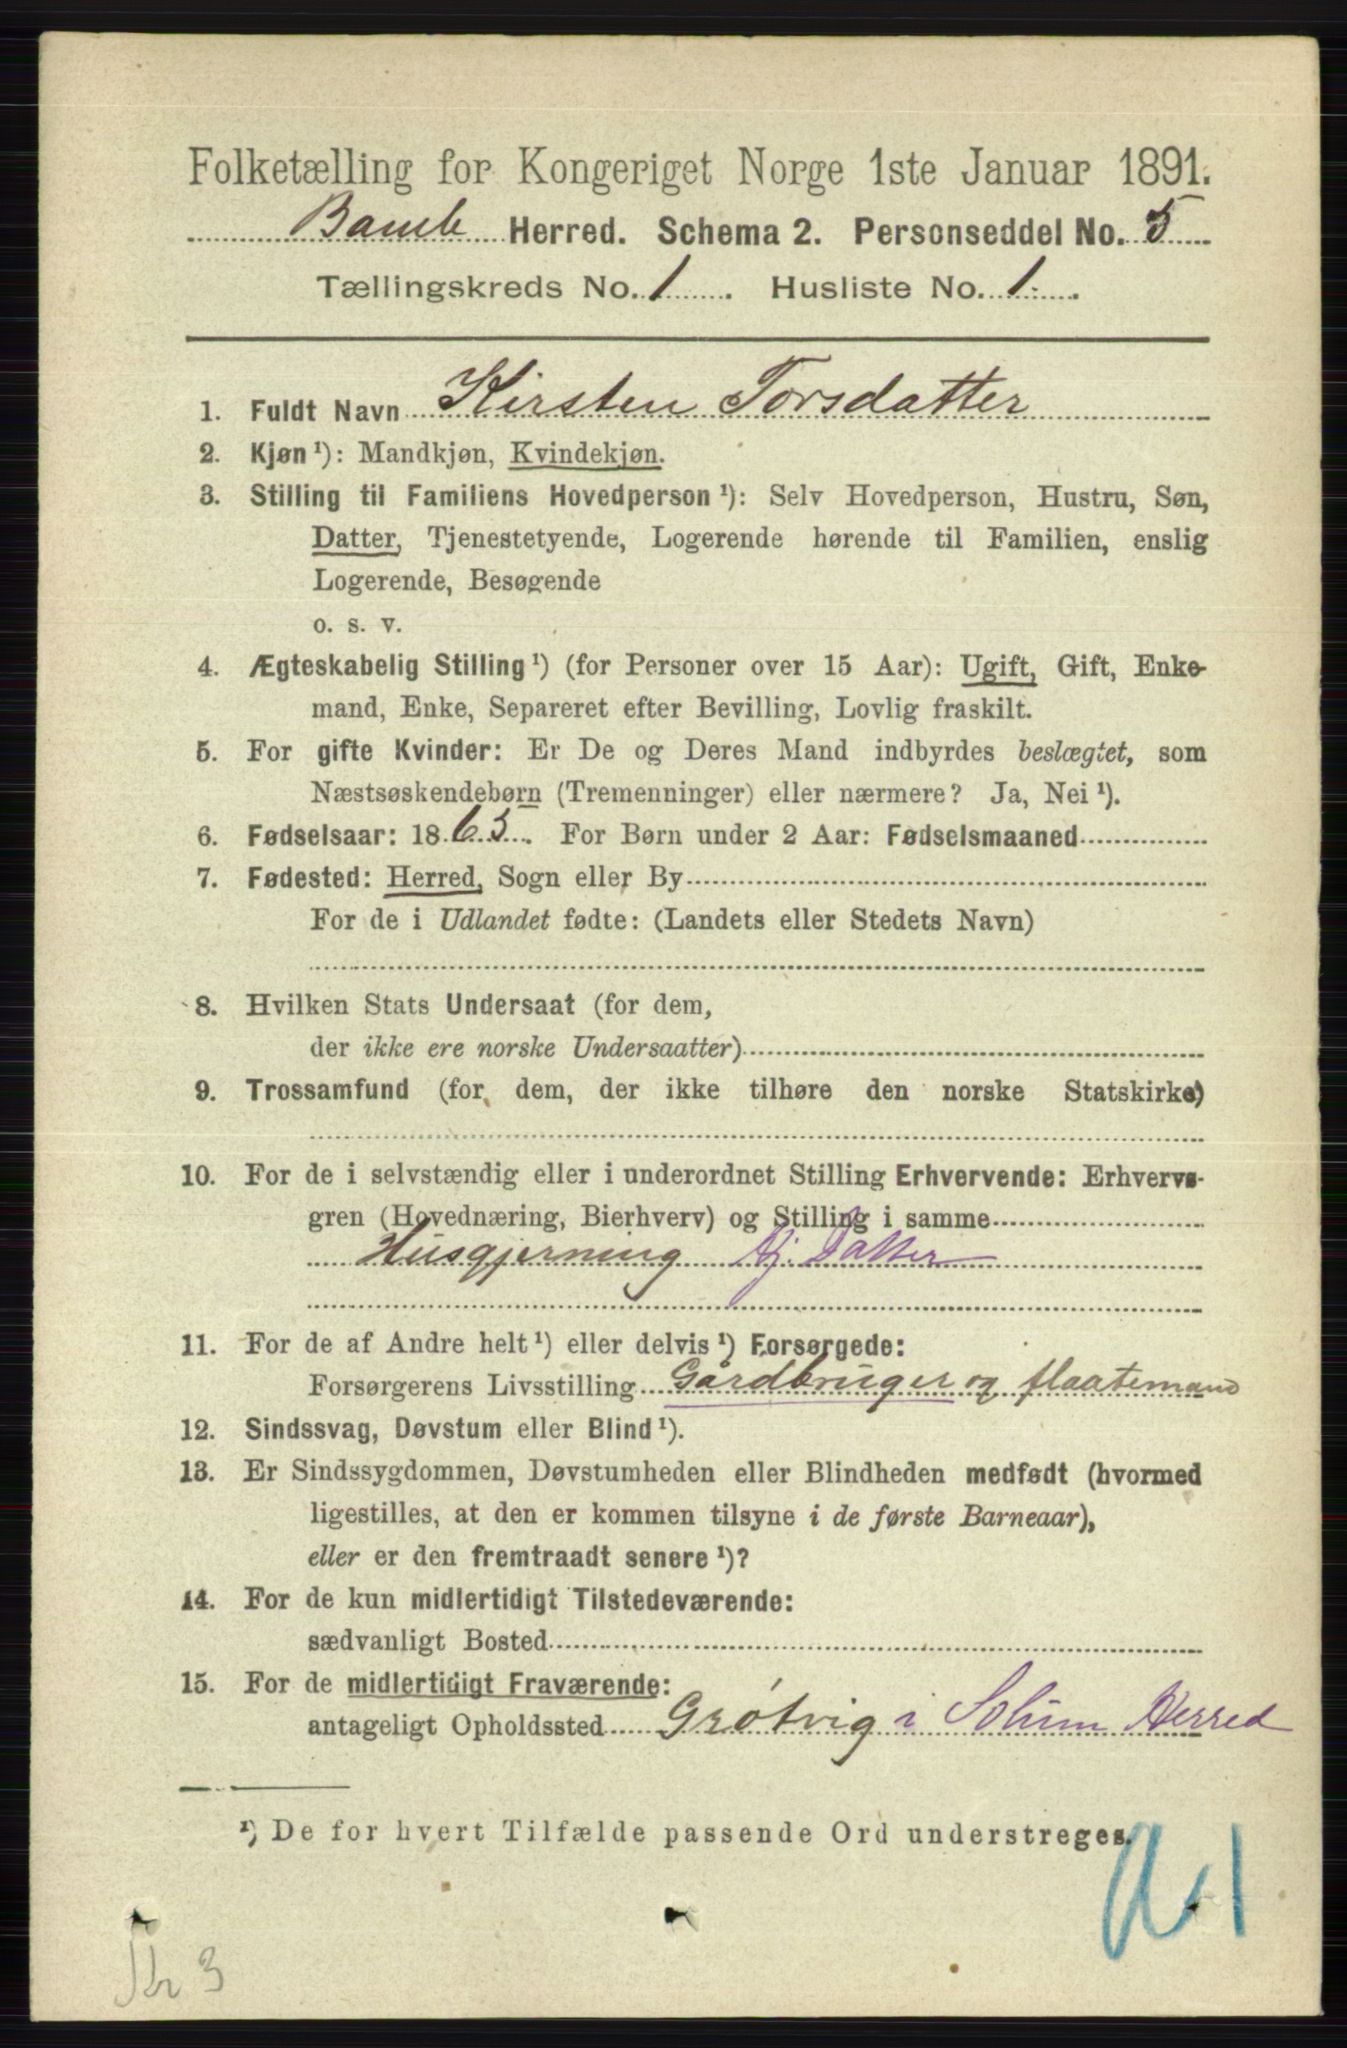 Folketælling for Kongeriget Norge 1ste Januar 1891.
Bamle Herred. Schema 2. Personseddel No. 5
Tællingskreds No. 1. Husliste No. 1.
1. Fuldt Navn Kirsten Torsdatter
2. Kjøn ¹): Mandkjøn, Kvindekjøn.
3. Stilling til Familiens Hovedperson ¹): Selv Hovedperson, Hustru, Søn,
Datter, Tjenestetyende, Logerende hørende til Familien, enslig
Logerende, Besøgende
o. s. v.
4. Ægteskabelig Stilling ¹) (for Personer over 15 Aar): Ugift, Gift, Enke-
mand, Enke, Separeret efter Bevilling, Lovlig fraskilt.
5. For gifte Kvinder: Er De og Deres Mand indbyrdes beslægtet, som
Næstsøskendebørn (Tremenninger) eller nærmere? Ja, Nei ¹).
6. Fødselsaar: 1865. For Børn under 2 Aar: Fødselsmaaned
7. Fødested: Herred, Sogn eller By
For de i Udlandet fødte: (Landets eller Stedets Navn)
8. Hvilken Stats Undersaat (for dem,
der ikke ere norske Undersaatter)
9. Trossamfund (for dem, der ikke tilhøre den norske Statskirke)
10. For de i selvstændig eller i underordnet Stilling Erhvervende: Erhvervs-
gren (Hovednæring, Bierhverv) og Stilling i samme
Husgjerning Hj. Datter
11. For de af Andre helt ¹) eller delvis ¹) Forsørgede:
Forsørgerens Livsstilling Gårdbruger og flaatemand
12. Sindssvag, Døvstum eller Blind ¹).
13. Er Sindssygdommen, Døvstumheden eller Blindheden medfødt (hvormed
ligestilles, at den er kommen tilsyne i de første Barneaar),
eller er den fremtraadt senere ¹)?
14. For de kun midlertidigt Tilstedeværende:
sædvanligt Bosted
15. For de midlertidigt Fraværende:
antageligt Opholdssted Grøtvig i Solum Herred
¹) De for hvert Tilfælde passende Ord understreges.